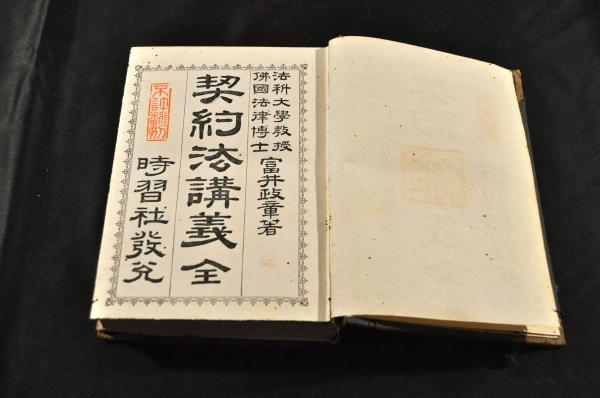 法科大學教授
佛國法律博士
富井政章著
契約法講義 全
時習社發兌